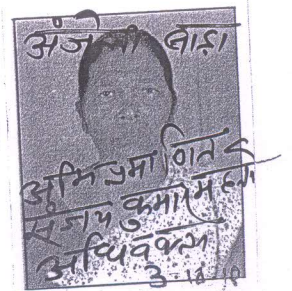 अंजेली बाड़ा
अभिप्रमाणित
संजय कुमार
अधिवक्ता
3-12-10